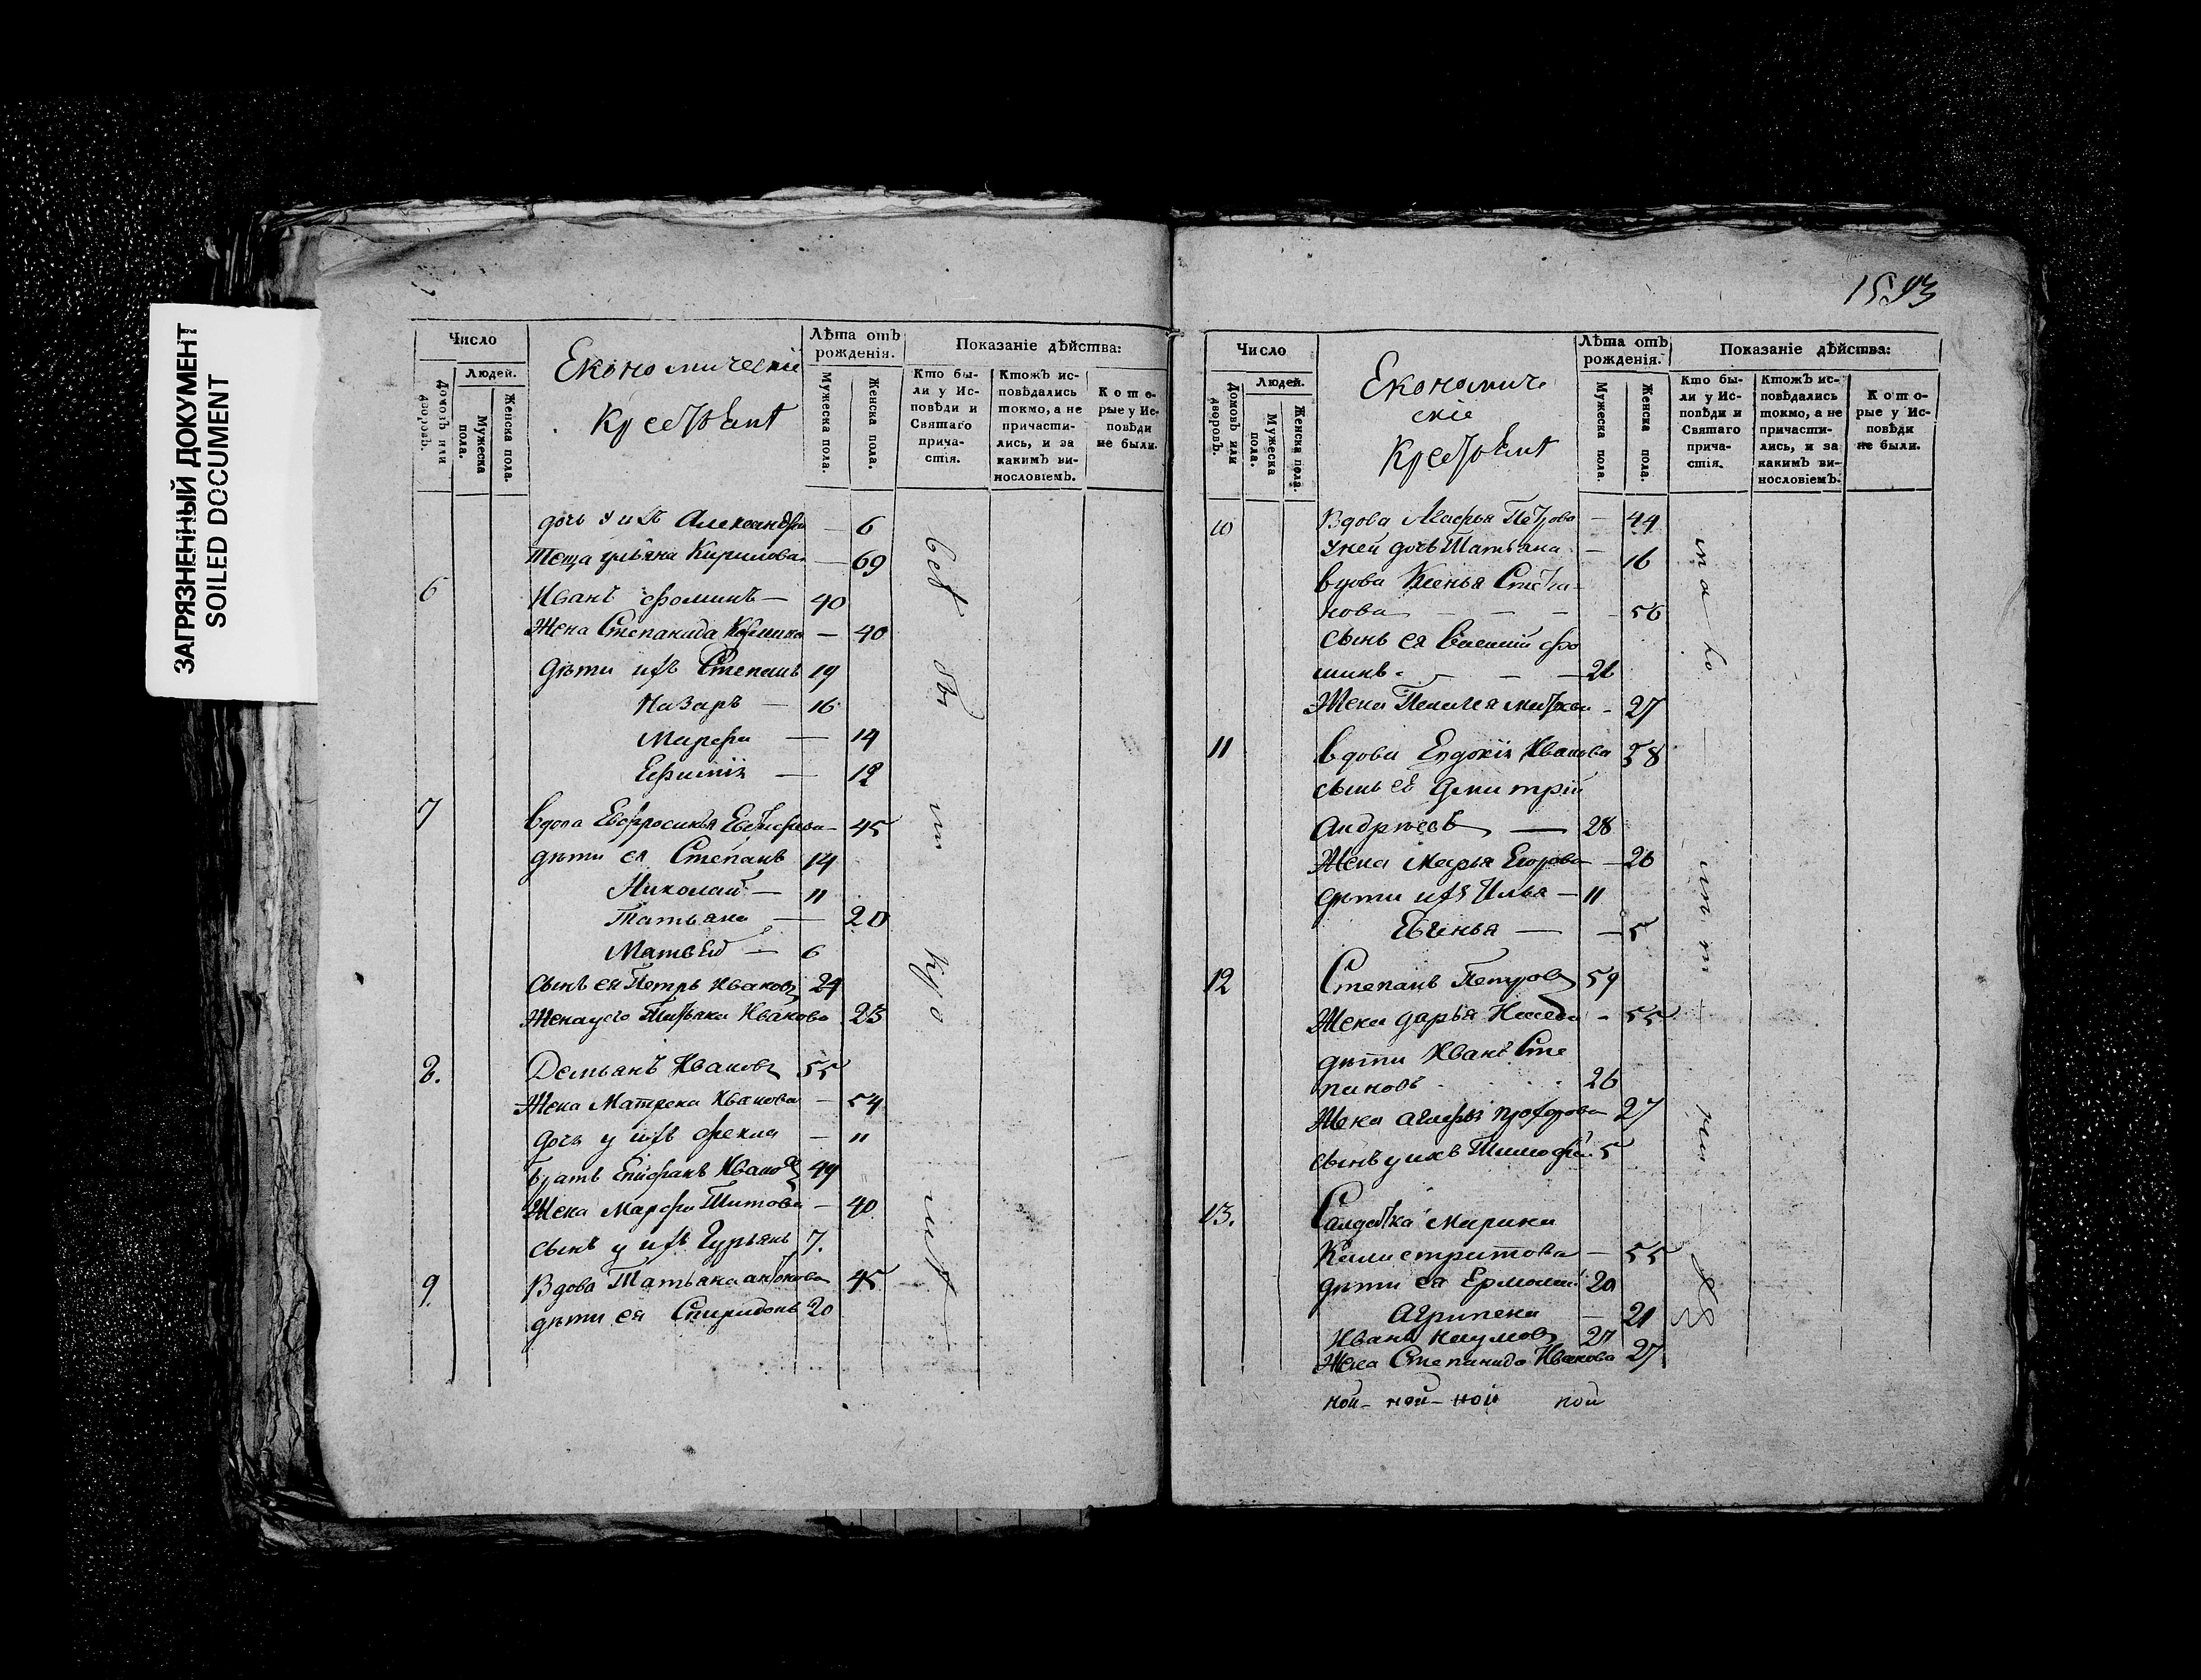 ЗАГРЯЗНЕННЫЙ ДОКУМЕНТ
SOILED DOCUMENT
Число
Людей.
Домовъ или дворовъ.
Мужеска пола.
Женска пола.
Економическiе
Лѣта отъ рожденiя.
Мужеска пола.
Женска пола.
Показанiе дѣйства:
Кто бы-
ли у Ис-
повѣди и
Святаго
прича-
стiя.
Ктожъ ис-
повѣдались
токмо, а не
причасти-
лись, и за
какимъ ви-
нословiемъ.
Кото-
рые у Ис-
повѣди
не были.
дочь у ихъ Александра — 6
Теща ульяна Кирилова — 69
6 Иванъ фоминъ — 40
Жена Степанида — 40
дѣти ихъ Степанъ 19
Назаръ — 16
Марфа — 14
Ефимiя — 12
7 вдова Евфросинья 45
дѣти ея Степанъ 14
Николай — 11
Татьяна — 20
Матвей — 6
сынъ ея Петръ Ивановъ 24
Жена у его Татьяна Иванова 23
8. Демьянъ Ивановъ 55
Жена Матрена Иванова — 54
дочь у ихъ фекла — 11
братъ Епифанъ Ивановъ 49
Жена Марфа Титова — 40
сынъ у ихъ Гурьянъ 7.
9. Вдова Татьяна антонова 45
дѣти ея Спиридонъ 20
1593
Число
Людей.
Домовъ или дворовъ.
Мужеска пола.
Женска пола.
Економиче
скiе
Лѣта отъ рожденiя.
Мужеска пола.
Женска пола.
Показанiе дѣйства:
Кто бы-
ли у Ис-
повѣди и
Святаго
прича-
стiя.
Ктожъ ис-
повѣдались
токмо, а не
причасти-
лись, и за
какимъ ви-
нословiемъ.
Кото-
рые у Ис-
повѣди
не были.
10 Вдова Агафья Петрова — 44
у ней дочь Татьяна — 16
вдова Ксенья Степа-
нова — — — 56
сынъ ея Василий фо
минъ — — 26
Жена Пелагея — 27
11 вдова Евдокiя Иванова 58
сынъ ее Димитрiй
Андрѣевъ — 28
Жена Марья Егорова — 26
дѣти ихъ Илья — 11
Евгенья — — 5
12 Степанъ Петровъ 59
Жена дарья — 55
дѣти Иванъ Сте
пановъ 26
Жена агафья прохорова 27
сынъ у ихъ Тимофей 5
13. Салдатка Марина
Калистратова — 55
дѣти ея Ермолай 20
Агрипена — 21
Иванъ Наумовъ 27
Жена Степанида Иванова 27
ной- ной- ной ной